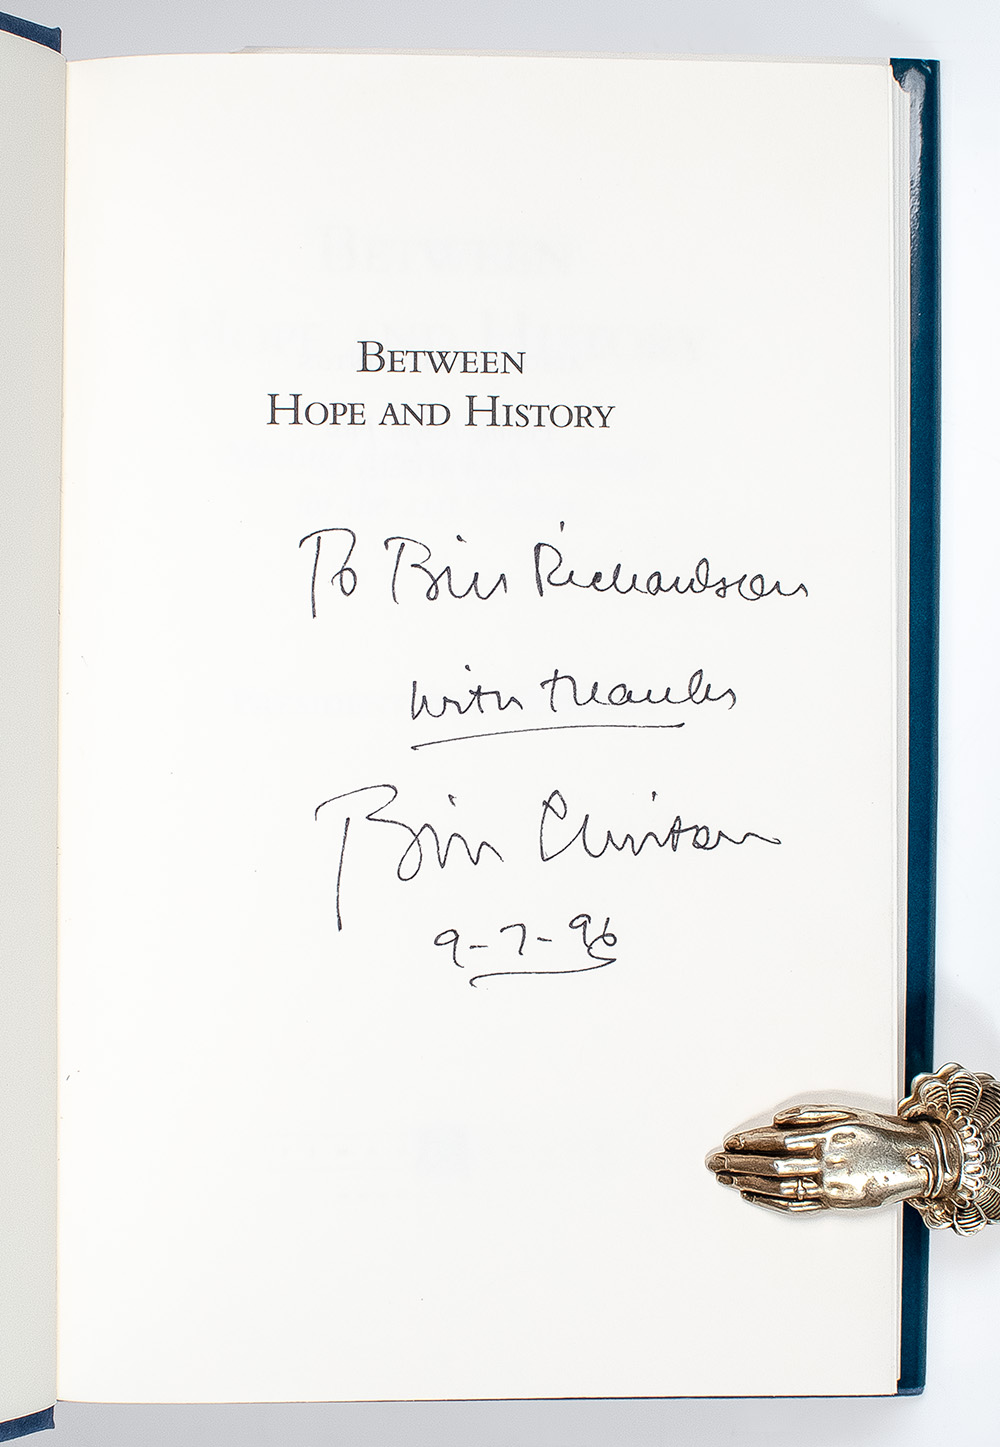 BETWEEN
HOPE AND HISTORY
To Bill Richardson
with thanks
Bill Clinton
9-7-96